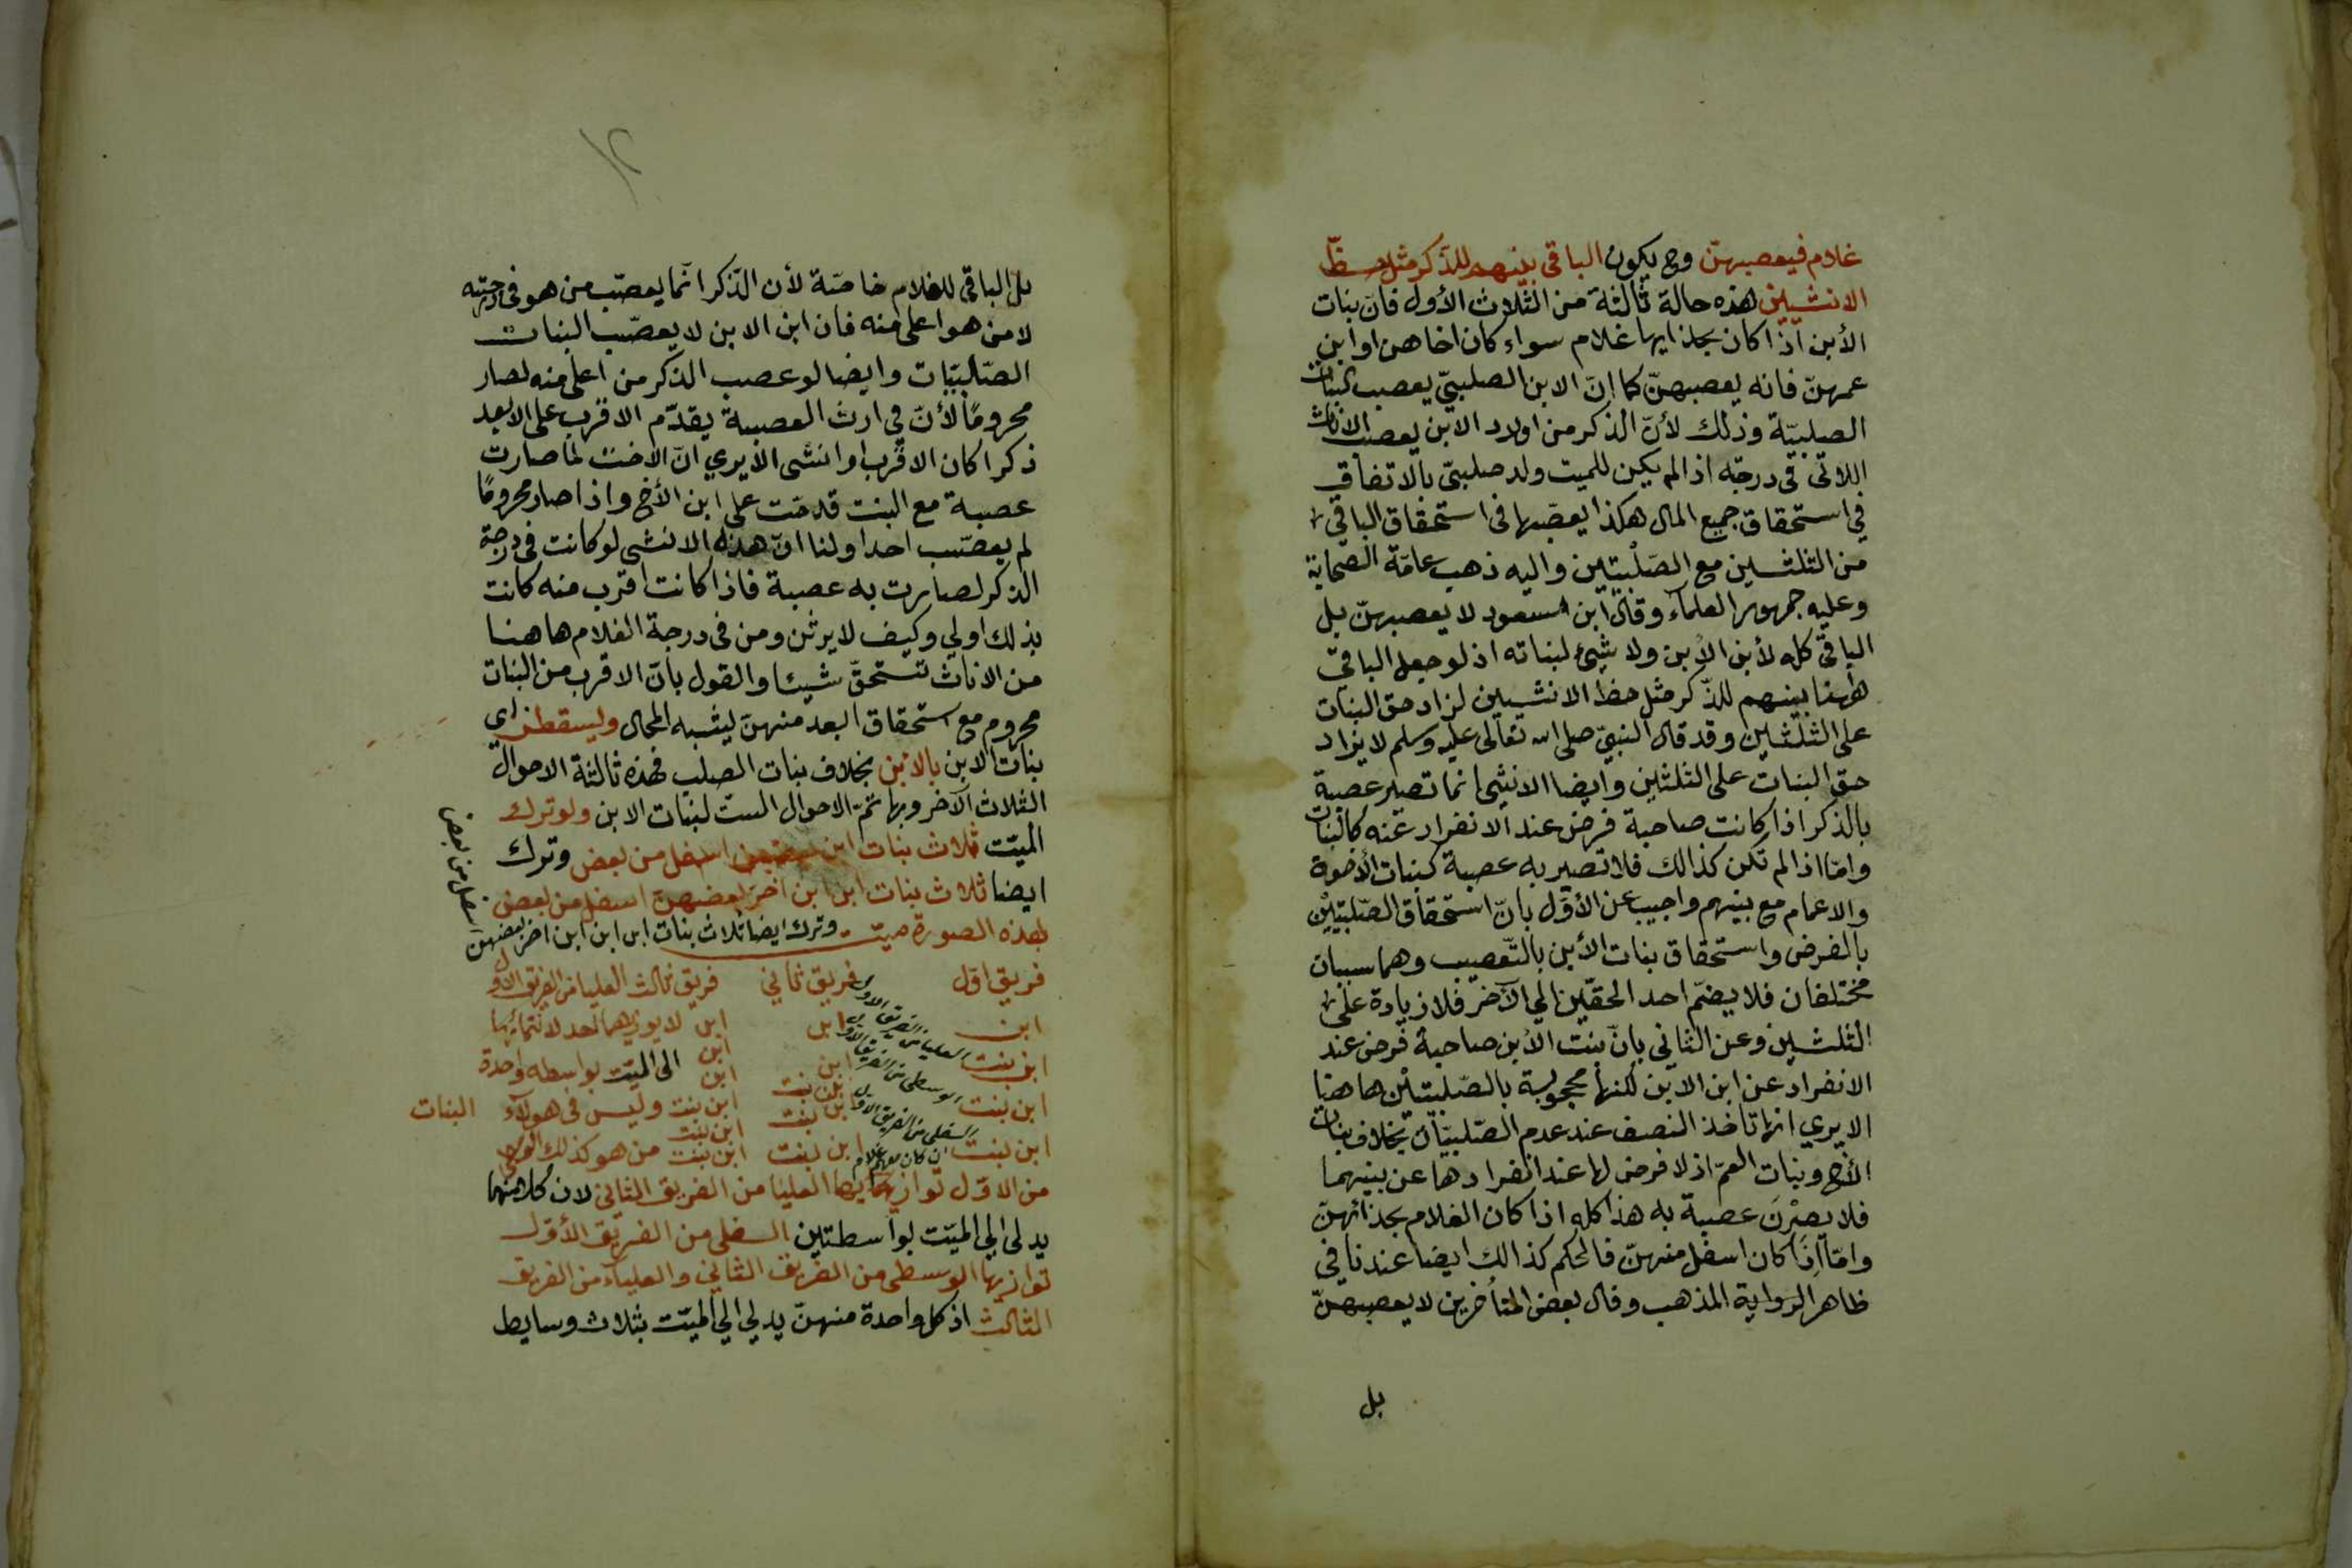 غلام فيعصبهنّ وح يكون الباقي بينهم للذكر مثل حظّ
الانثيين هذه حالة ثالثة من الثّلاث الأول فانّ بنات
الأبن اذا كان بحذايها غلام سواء كان اخاهن او ابن
عمهنّ فانه يعصبهنّ كما انّ الابن الصلبيّ يعصب البنات
الصلبيّة وذلك لأنّ الذكر من اولاد الابن يعصب الاناث
اللاتى في درجته اذا لم يكن للميت ولد صلبيّ بالاتفاق
في استحقاق جميع المال هكذا يعصّبها في استحقاق الباقي
من الثلثين مع الصّلبيتين واليه ذهب عامّة الصحابة
وعليه جمهور العلمآء وقال ابن مسعود لا يعصبهنّ بل
الباقي كله لأبن الأبن ولا شيئ لبناته اذ لو جعل الباقيّ
بينهم للذّكر مثل حظ الانثيين لزاد حق البنات
على الثلثين وقد قال النبيّ صلى الله تعالى عليه وسلم لا يزاد
حق البنات على الثلثين وايضا الانثى انما تصير عصبة
بالذكر اذا كانت صاحبة فرض عند الانفراد عنه كالبنات
وامّا اذا لم تكن كذالك فلا تصير به عصبة كبنات الأخوة
والاعمام مع بنيهم واجيب عن الأوّل بانّ استحقاق الصّلبيتين
بالفرض واستحقاق بنات الأبن بالتّعصيب وهما سببان
مختلفان فلا يضمّ احد الحقّين الي الآخر فلا زيادة على
الثلثين وعن الثاني بانّ بنت الأبن صاحبة فرض عند
الانفراد عن ابن الابن لكنها محجوبة بالصّلبيتين هاهنا
الا يري انها تاخذ النصف عند عدم الصّلبيّات بخلاف بنات
الأخ وبنات العمّ اذ لا فرض لها عند انفرادها عن بنيهما
فلا يصرْنَ عصبة به هذا كله اذا كان الغلام بحذائهنّ
وامّا اذا كان اسفل منهنّ فالحكم كذالك ايضا عندنا في
ظاهر الرواية المذهب وقال بعض المتأخرين لا يعصبهنّ
بل
بل الباقي للغلام خاصّة لأن الذّكر انّما يعصّب من هو في درجته
لا من هو اعلى منه فان ابن الابن لا يعصّب البنات
الصّلبيّات وايضا لو عصب الذكر من اعلى منه لصار
محرومًا لأنّ في ارث العصبة يقدّم الاقرب على الابعد
ذكرا كان الاقرب او انثى الا يري انّ الاخت لما صارت
عصبة مع البنت قدمّت على ابن الأخ واذا صار محرومًا
لم يعصّب احدا ولنا انّ هذه الانثى لو كانت في درجة
الذكر لصارت به عصبة فاذا كانت اقرب منه كانت
بذلك اولي وكيف لا يرثن ومن في درجة الغلام هاهنا
من الاناث تستحقّ شيئا والقول بانّ الاقرب من البنات
محروم مع استحقاق ابعد منهنّ يشبه المحال ويسقطن اي
بنات الابن بالابن بخلاف بنات الصلب فهذه ثالثة الاحوال
الثلاث الآخر وبها تتمّ الاحوال الستّ لبنات الابن ولو ترك
الميّت ثلاث بنات ابن بعضهن اسفل من بعض وترك
ايضا ثلاث بنات ابن ابن اخر بعضهنّ اسفل من بعض
بهذه الصورة ميت وترك ايضا ثلاث بنات ابن ابن ابن اخر بعضهن
اسفل من بعض
فريق اوّل فريق ثاني فريق ثالث العليا من الفريق الاول
ابن العليا من الفريق الاول ابن ابن لا يوازيها احد لانتمائها
ابن بنت الوسطى من الفريق الاول ابن ابن الى الميّت بواسطه واحدة
ابن
ابن بنت السفلى من الفريق الاول ابن بنت ابن بنت وليس في هولآء البنات
ابن بنت ابن بنت
ابن بنت ان كان معهم غلام ابن بنت ابن بنت من هو كذلك
من الاوّل توازيها العليا من الفريق الثاني لان كلا منهما
يدلى الي الميّت بواسطتين السفلى من الفريق الأوّل
توازيها الوسطى من الفريق الثاني والعليا من الفريق
الثالث اذ كل واحدة منهنّ يدلي الي الميّت بثلاث وسايط